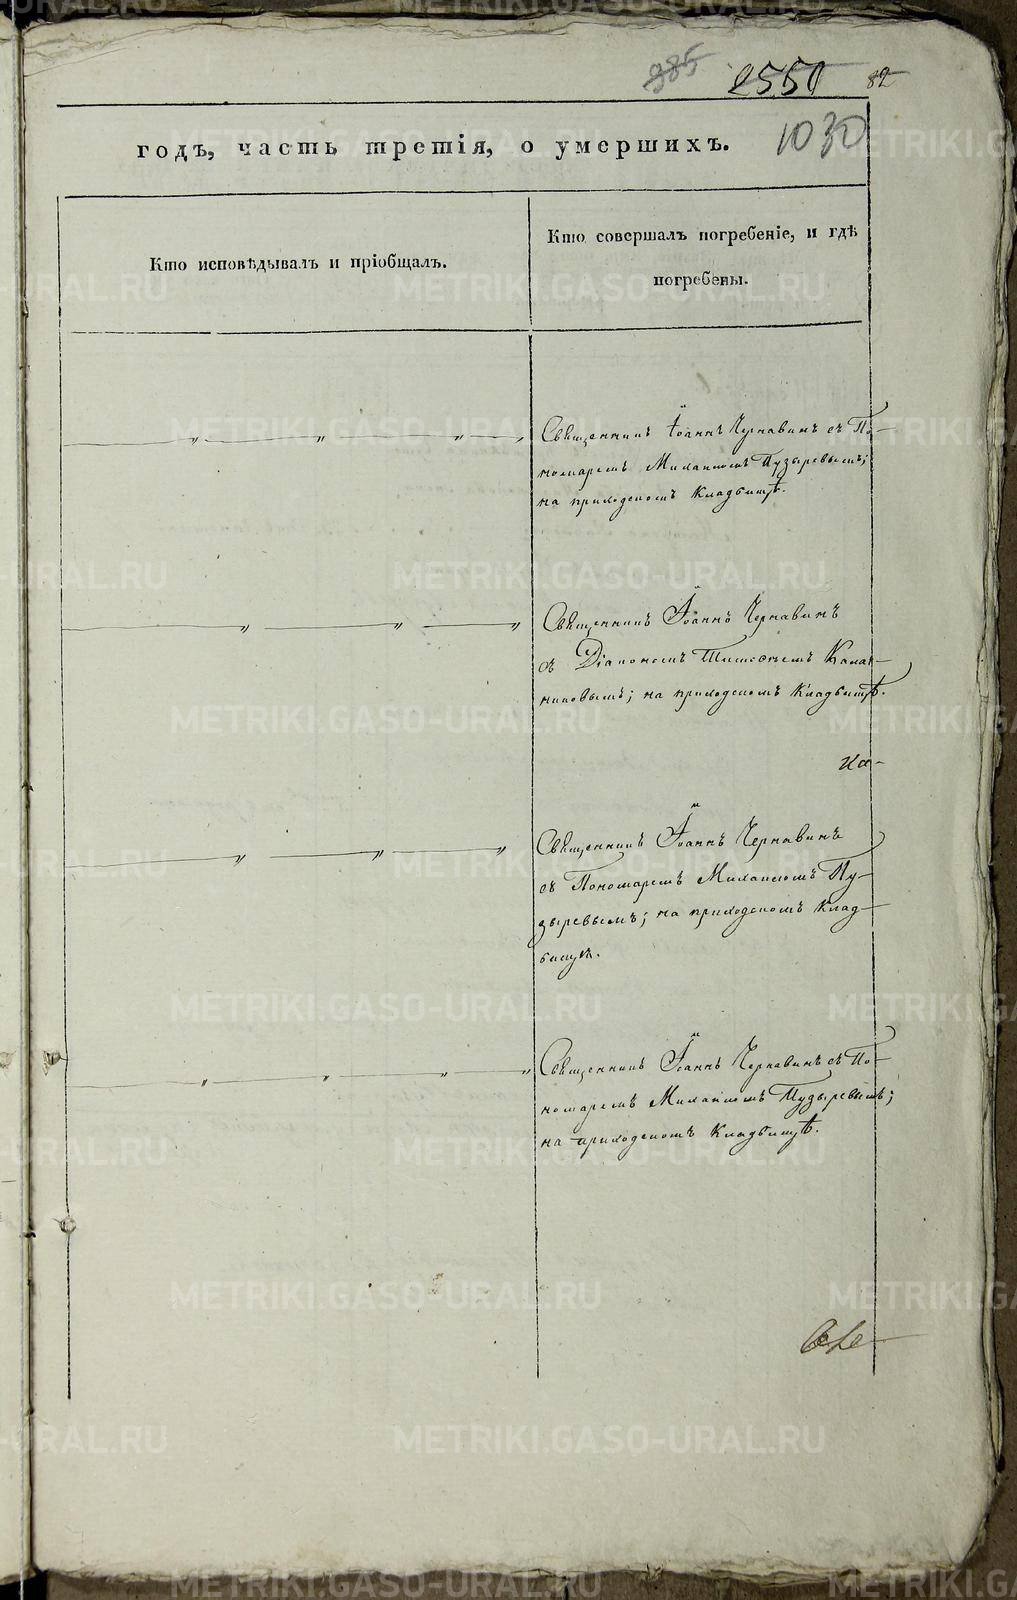 885 2551 82
годъ, часть третія, о умершихъ. 1030
Кто исповѣдывалъ и пріобщалъ.
Кто совершалъ погребеніе, и гдѣ
погребены.
Священникъ Іоаннъ Чернавинъ съ По-
номаремъ Михаиломъ Пузыревымъ;
на приходскомъ кладбищѣ.
Священникъ Іоаннъ Чернавинъ
съ Діакономъ
; на приходскомъ кладбищѣ.
Священникъ Іоаннъ Чернавинъ
съ Пономаремъ Михаиломъ Пу-
зыревымъ; на приходскомъ клад-
бищѣ.
Священникъ Іоаннъ Чернавинъ съ По-
номаремъ Михаиломъ Пузыревымъ;
на приходскомъ кладбищѣ.
METRIKI.GASO-URAL.RU